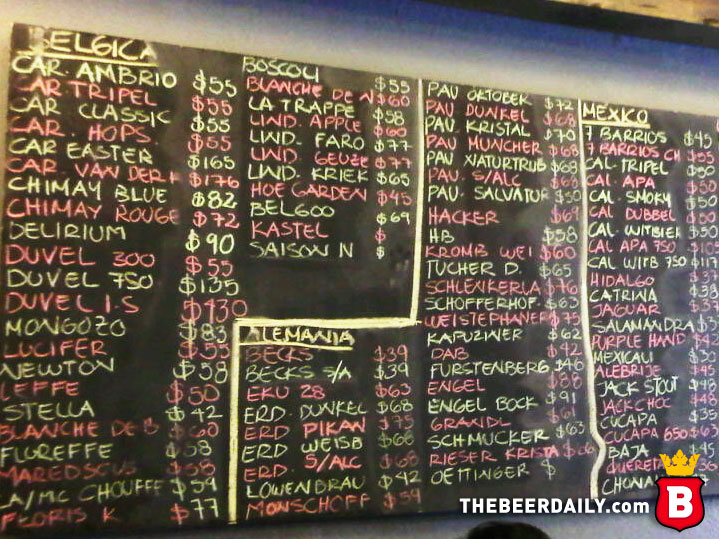 BELGICA
CAR. AMBRIO $55
CAR TRIPEL $55
CAR CLASSIC $55
CAR. HOPS. $55
CAR EASTER $165
CAR. VAN DER $176
CHIMAY BLUE $82
CHIMAY ROUGE $72
DELIRIUM $90
DUVEL 300 $55
DUVEL 750 $135
DUVEL I.S $130
MONGOZO $83
LUCIFER $55
NEWTON $58
LEFFE $50
STELLA $42
BLANCHE DE B $60
FLOREFFE $58
MAREDSCUS $58
LA/MC CHOUFFE $59
FLORIS K $77
BOSCOLI $55
BLANCHE DE N $60
LA TRAPPE $58
LIND. APPLE $60
LIND. FARO $77
LIND. GEUZE $77
LIND. KRIEK $65
HOE GARDEN $45
BELGOO $69
KASTEL $
SAISON N $
ALEMANIA
BECKS $39
BECKS S/A $39
EKU 28 $63
ERD. DUNKEL $68
ERD PIKAN $75
ERD WEISB $68
ERD. S/ALC $68
LOWENBRAU $42
MONSCHOFF $59
PAU OKTOBER $72
PAU DUNKEL $68
PAU. KRISTAL $70
PAU MUNCHER $68
PAU NATURTRUB $68
PAU. S/ALC $68
PAU. SALVATOR $50
HACKER $69
HB $58
KROMB WEI $60
TUCHER D. $65
SCHLENKERLA $76
SCHOFFERHOF. $63
WEISTEPHANER $75
KAPUZINER $62
DAB $42
FURSTENBERG $46
ENGEL $88
ENGEL BOCK $91
GRANDL $61
SCHMUCKER $63
RIESER KRISTA
OETTINGER $
MEXICO
7 BARRIOS $45
7 BARRIOS CH
CAL. TRIPEL
CAL. APA $50
CAL. SMOKY $50
CAL DUBBEL $50
CAL. WITBIER $50
CAL APA 750
CAL WITB 750 $117
HIDALGO $37
CATRINA
JAGUAR
SALAMANDRA
PURPLE HAND $42
MEXICALI
ALEBRIJE $45
JACK STOUT $48
JACK CHOC $48
CUCAPA $35
CUCAPA 650 $63
BAJA $45
QUERETA
CHONA
THEBEERDAILY.com
B